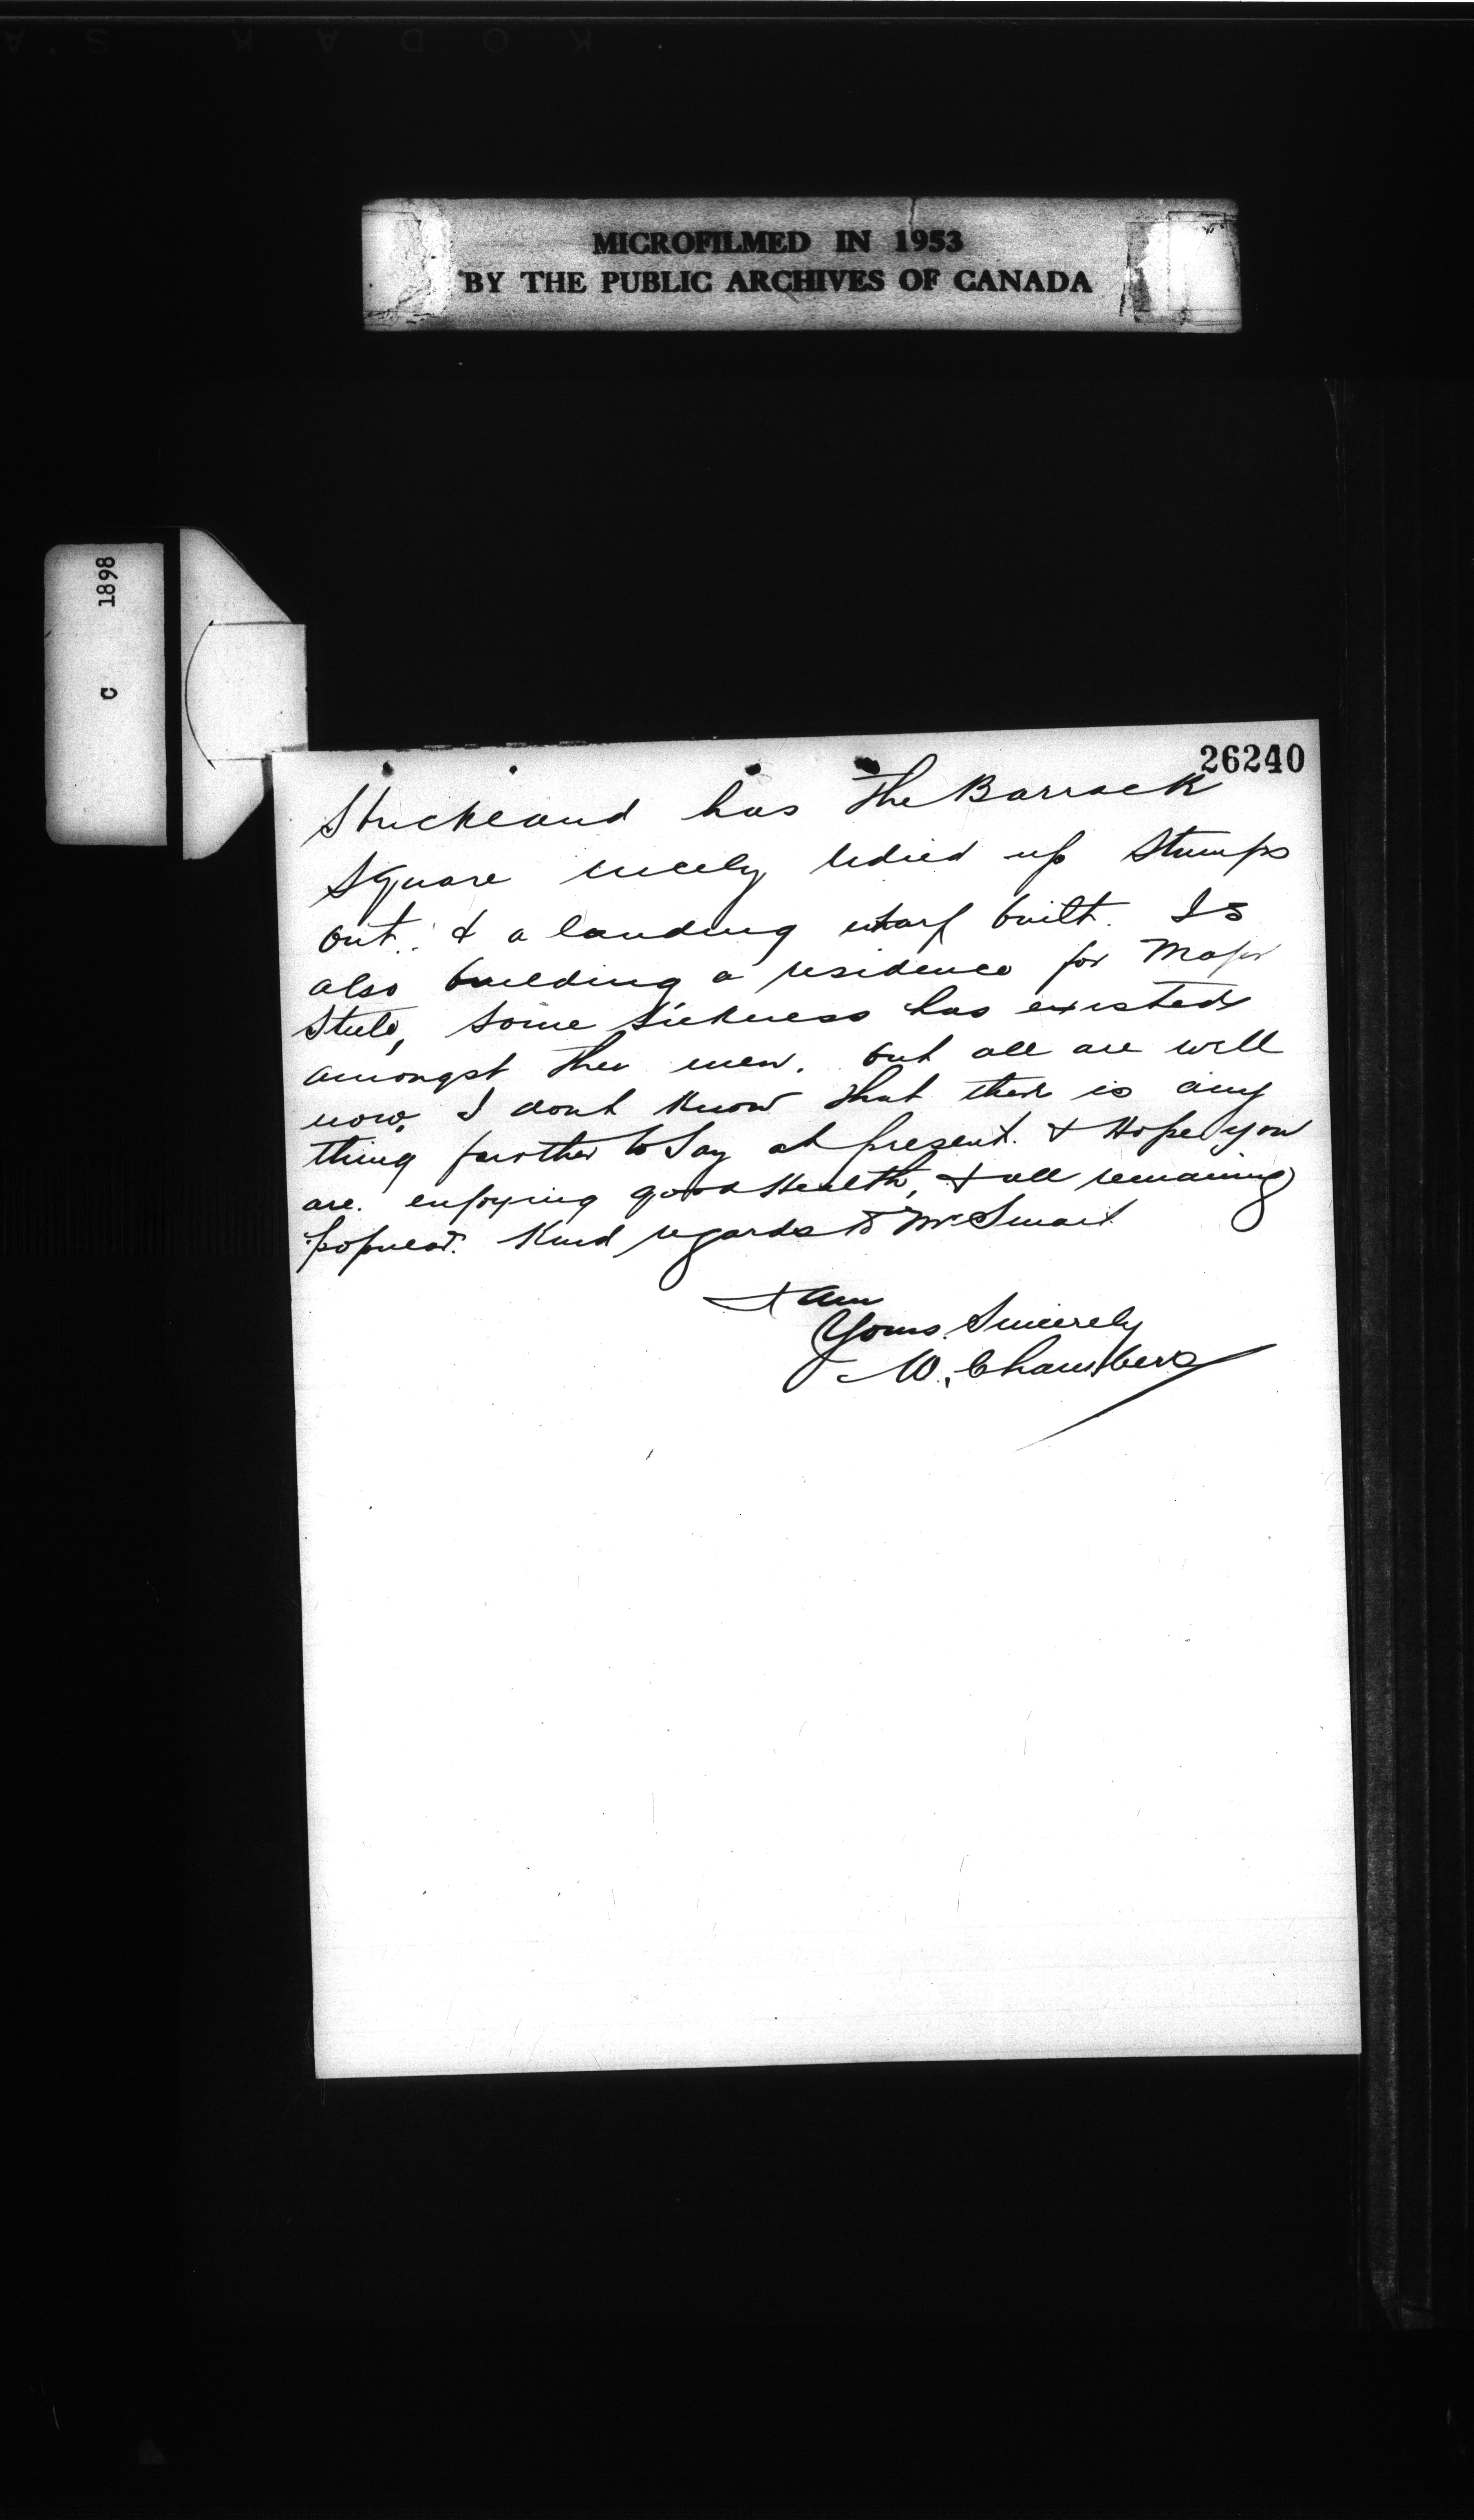 MICROFILMED IN 1953
BY THE PUBLIC ARCHIVES OF CANADA
C 1898
26240
Strickland has the Barrack
Square nicely tidied up Stumps
out. & a landing wharf built. Is
also building a residence for Major
Steele, Some Sickness has existed
amongst the men. but all are well
now. I dont Know that there is any
thing further to Say at present. & Hope you
are. enjoying good Health, & all remaining
popular. Kind regards to Mr Smart
I am
Yours Sincerely
W. Chambers